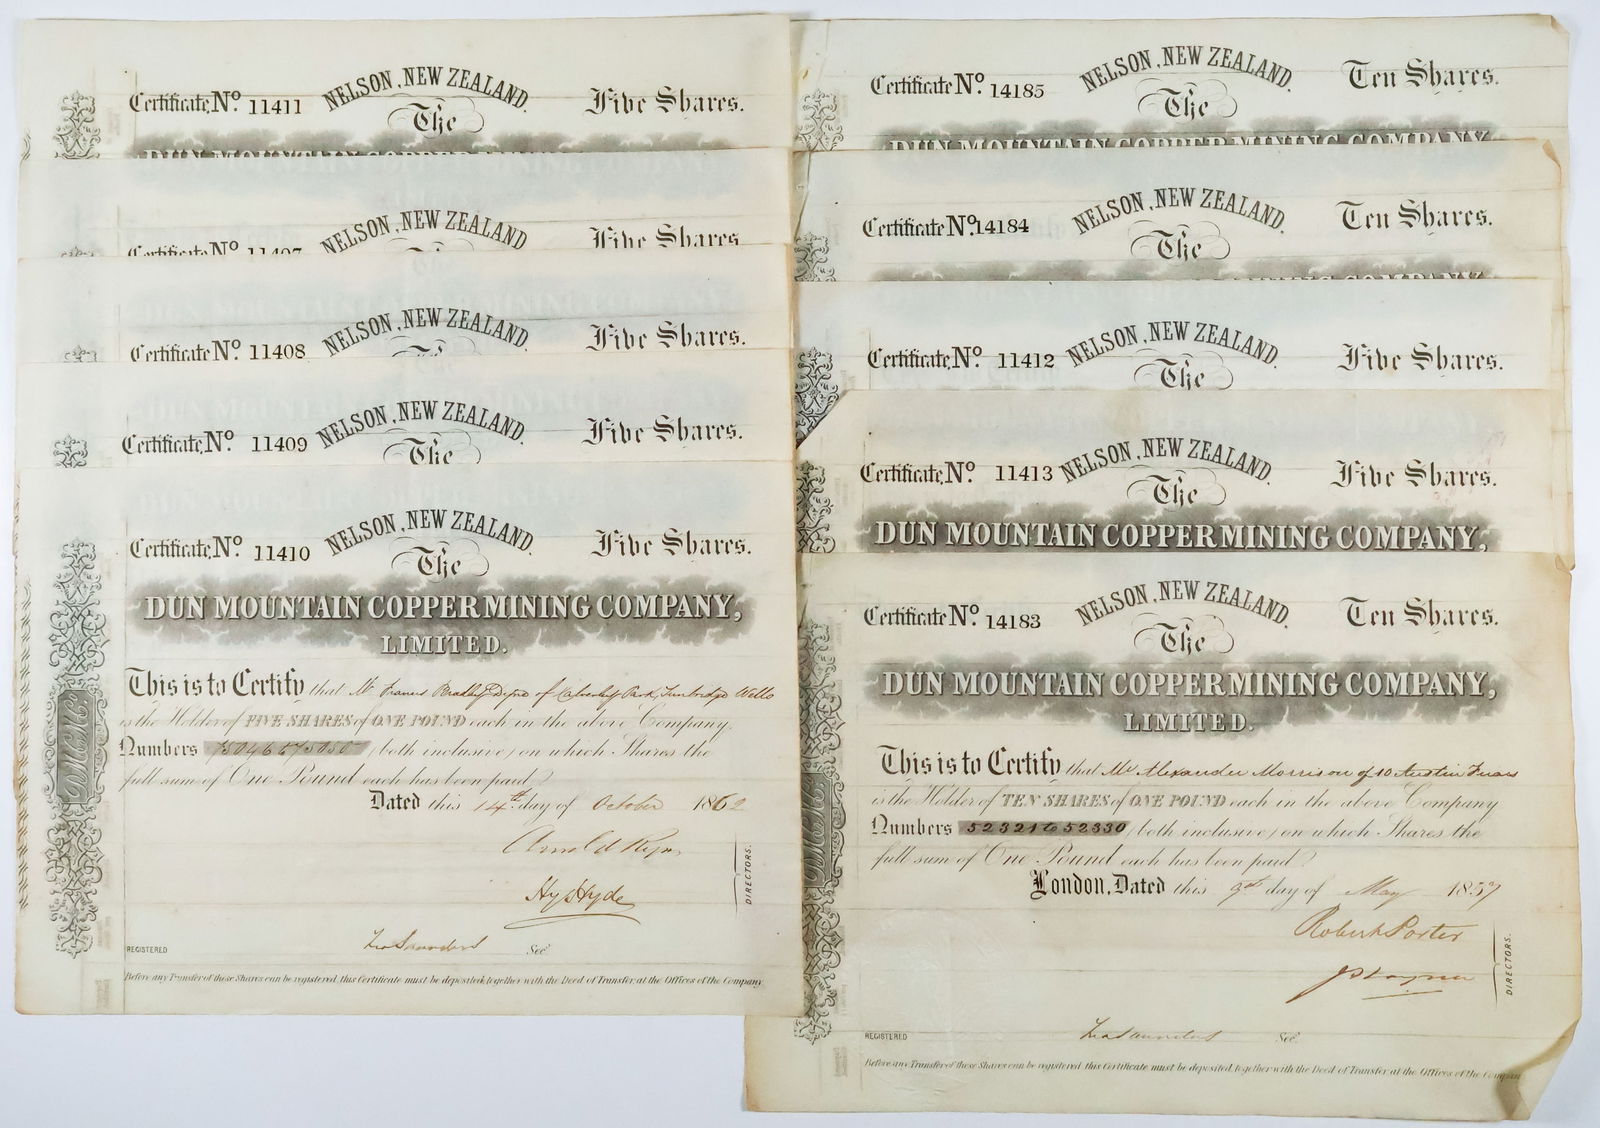 Certificate, No. 11411
NELSON, NEW ZEALAND.
The
Five Shares.
DUN MOUNTAIN COPPER MINING
NELSON, NEW ZEALAND.
Certificate No. 11407
Five Shares
NELSON, NEW ZEALAND.
Certificate No. 11408
Five Shares.
NELSON, NEW ZEALAND.
Certificate, No. 11409
The
Five Shares.
NELSON, NEW ZEALAND.
Certificate, No. 11410
The
Five Shares.
DUN MOUNTAIN COPPER MINING COMPANY,
LIMITED.
This is to Certify that Mr. Francis Bradley Dyne of Park, Tunbridge Wells
is the Holder of FIVE SHARES of ONE POUND each in the above Company.
Numbers 75046 to 75050 (both inclusive) on which Shares the
full sum of One Pound each has been paid
Dated this 14th day of October 1862
Hy Hyde
DIRECTORS.
REGISTERED
Geo Saunders Sec.
Before any Transfer of these Shares can be registered, this Certificate must be deposited, together with the Deed of Transfer, at the Offices of the Company.
D.M.C.M.C.
Certificate No. 14185
NELSON, NEW ZEALAND.
The
Ten Shares.
DUN MOUNTAIN COPPER MINING COMPANY,
Certificate No. 14184
NELSON, NEW ZEALAND.
The
Ten Shares.
MINING COMPANY,
Certificate, No. 11412
NELSON, NEW ZEALAND.
The
Five Shares.
Certificate, No. 11413
NELSON, NEW ZEALAND.
The
Five Shares.
DUN MOUNTAIN COPPER MINING COMPANY,
Certificate No. 14183
NELSON, NEW ZEALAND.
The
Ten Shares.
DUN MOUNTAIN COPPER MINING COMPANY,
LIMITED.
This is to Certify that Mr. Alexander Morrison of 10 Austin Friars
is the Holder of TEN SHARES of ONE POUND each in the above Company
Numbers 52321 to 52330 (both inclusive) on which Shares the
full sum of One Pound each has been paid
London, Dated this 9th day of May 1857
Robert Porter
DIRECTORS.
REGISTERED
Geo Saunders Sec.
Before any Transfer of these Shares can be registered this Certificate must be deposited, together with the Deed of Transfer at the Offices of the Company